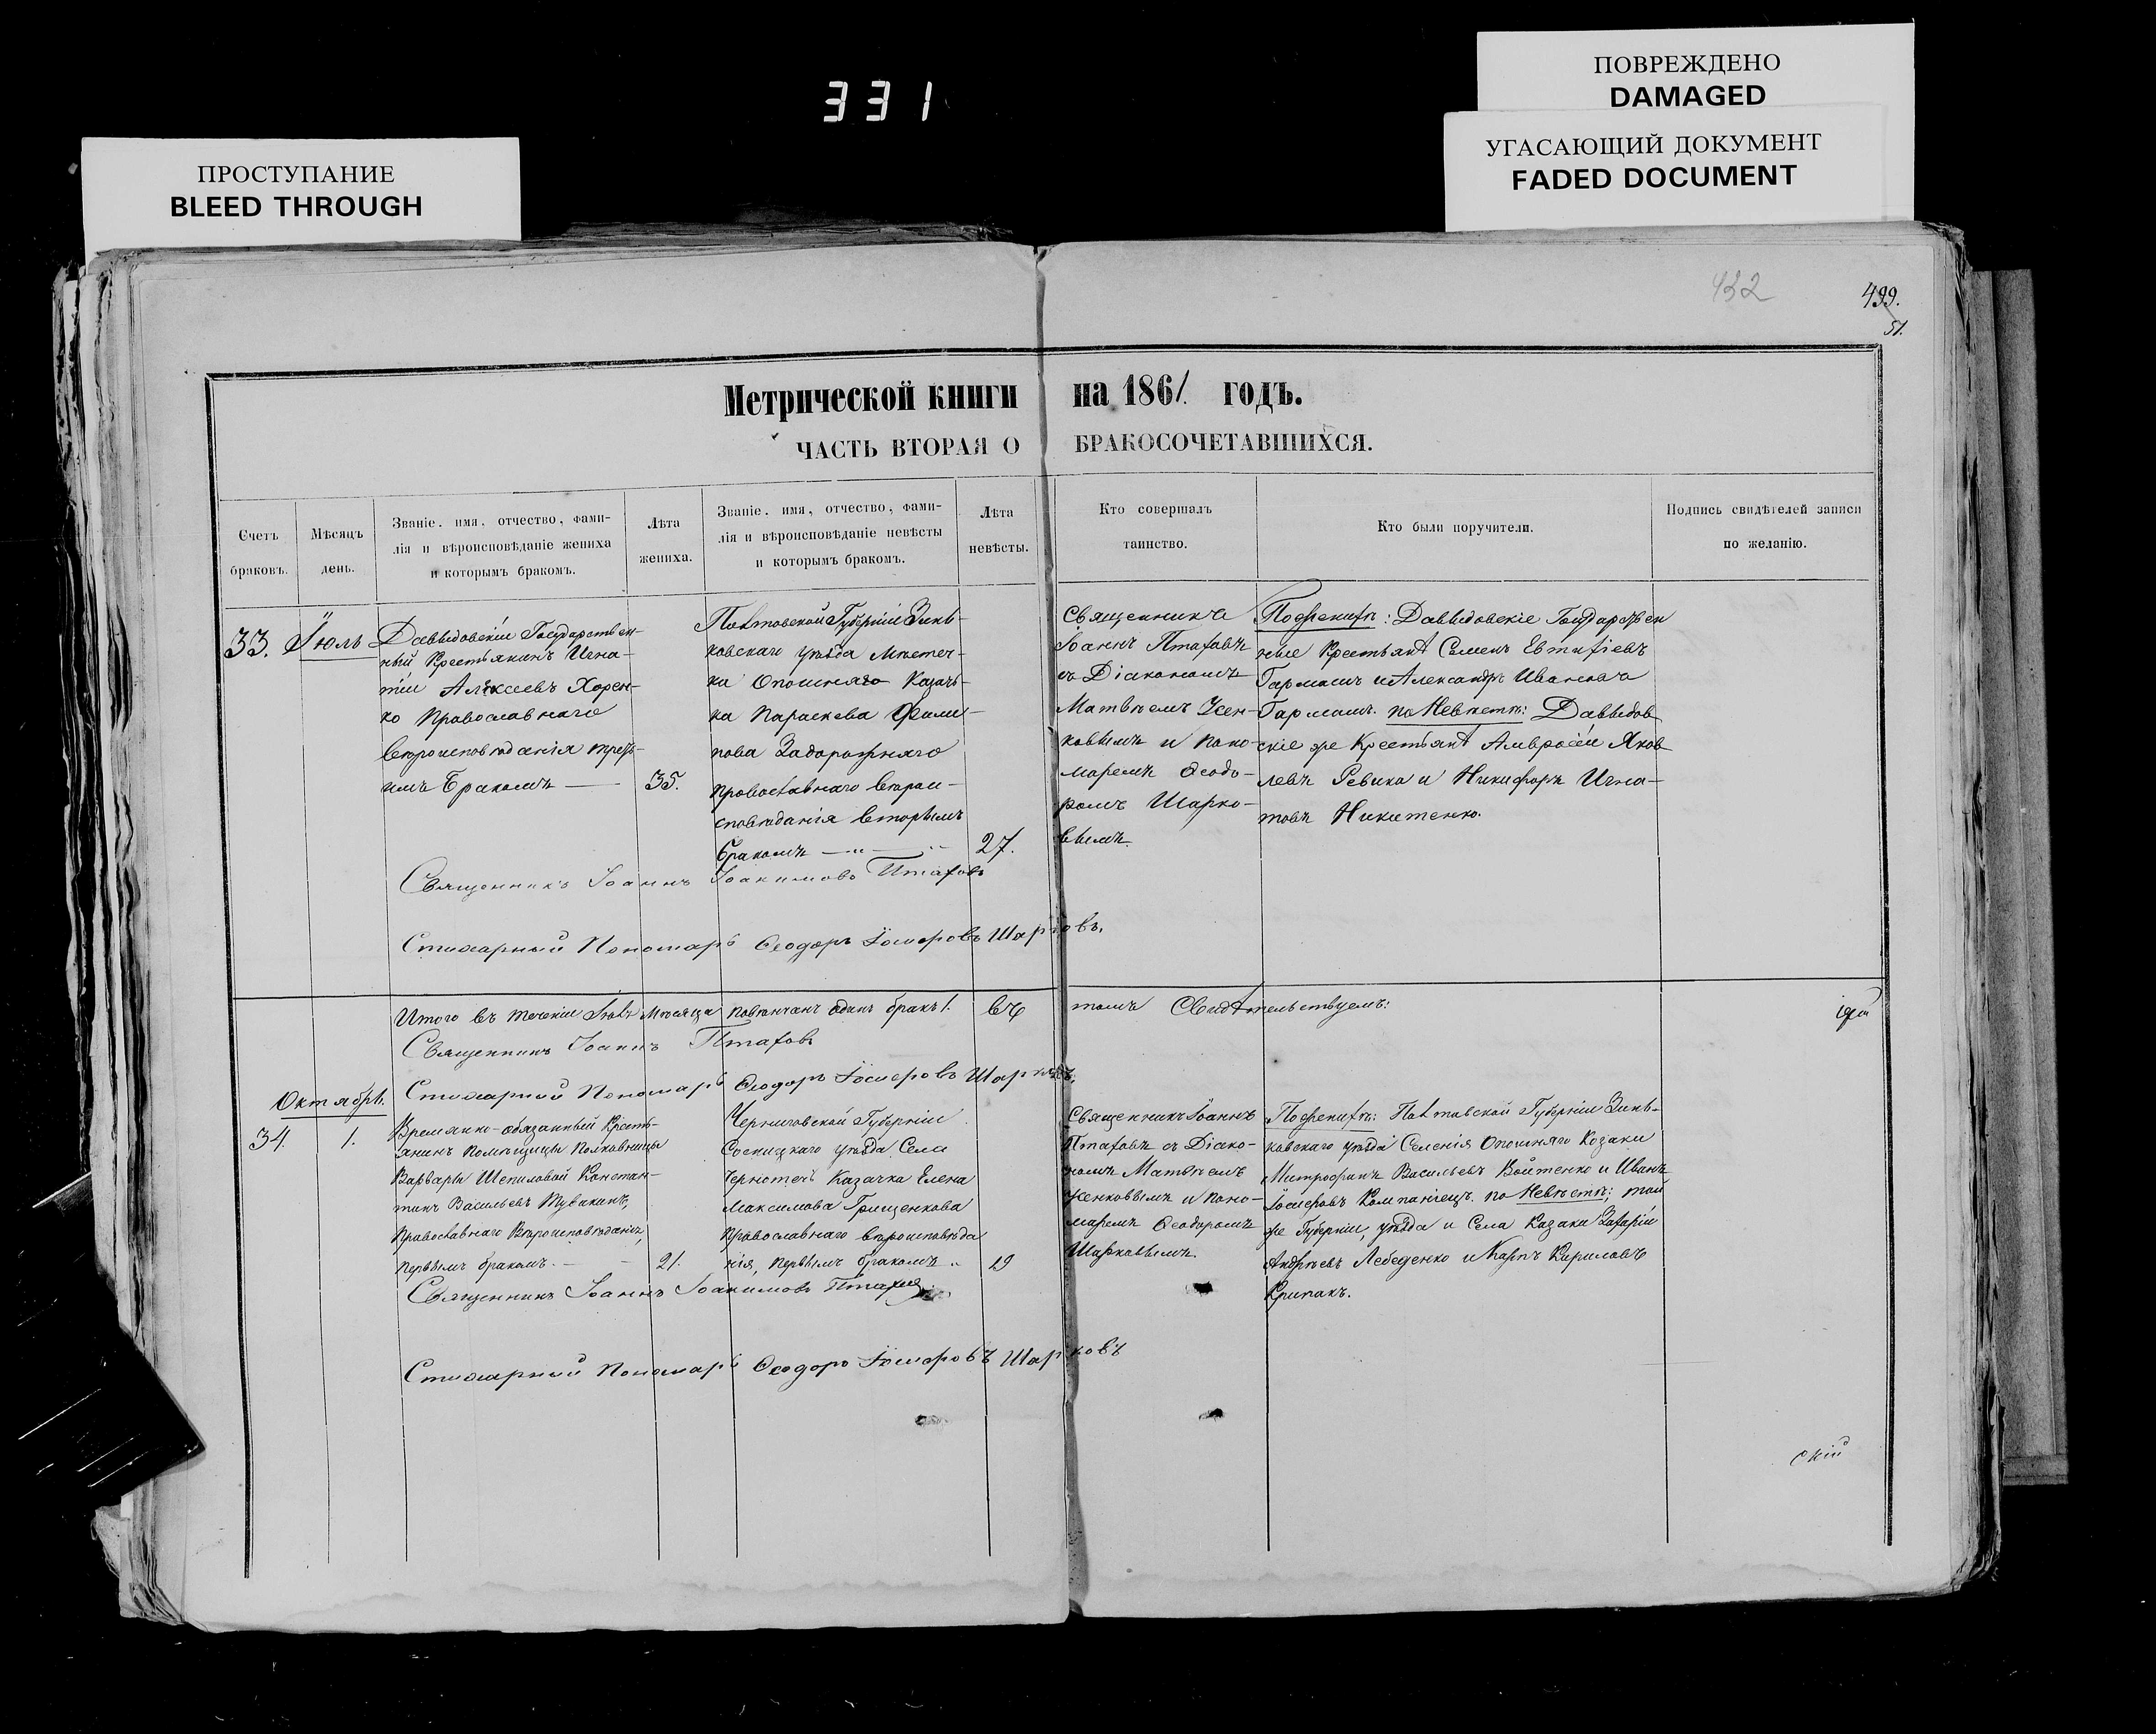 331
ПОВРЕЖДЕНО
DAMAGED
УГАСАЮЩИЙ ДОКУМЕНТ
FADED DOCUMENT
ПРОСТУПАНИЕ
BLEED THROUGH
432
499.
51.
Метрической книги на 1861 годъ.
ЧАСТЬ ВТОРАЯ О БРАКОСОЧЕТАВШИХСЯ.
Счетъ
браковъ.
Мѣсяцъ
день.
Званіе. имя, отчество, фами-
лія и вѣроисповѣданіе жениха
и которымъ бракомъ.
Лѣта
жениха.
Званіе. имя, отчество, фами-
лія и вѣроисповѣданіе невѣсты
и которымъ бракомъ.
Лѣта
невѣсты.
Кто совершалъ
таинство.
Кто были поручители.
Подпись свидѣтелей записи
по желанію.
33.
Іюль
Давыдовскіи Государствен-
ный Крестьянинъ Игна-
тіи Алексеевъ Хорен-
ко Православнаго
вероисповѣданія треть-
имъ Бракомъ —
35.
Полтавской Губерніи Зинь-
ковскаго уѣзда Мѣстеч-
ка Опошняго Казач-
ка Параскева Фили-
пова Задорожняго
православнаго верои-
сповѣданія вторымъ
бракомъ — " — "
27.
Священникъ
Іоаннъ Птаховъ
съ Діакономъ
Матвѣемъ Усен-
ковымъ и Поно-
маремъ Ѳеодо-
ромъ Шарко-
вымъ.
По женихѣ: Давыдовскіе Государствен
ные Крестьянѣ Семенъ Евтифіевъ
Гармашъ и Александръ Ивановъ
Гармашъ. по Невѣстѣ: Давыдов
скіе же Крестьянѣ Амвросіи Яков
левъ Ревика и Никифоръ Игна-
товъ Никитенко.
Священникъ Іоаннъ Іоакимовъ Птаховъ
Стихарный Пономарь Ѳеодоръ Іосифовъ Шарковъ.
Итого въ теченіи Іюлѣ Мѣсяца повѣнчанъ одинъ бракъ 1. въ томъ Свидѣтельствуемъ:
Священникъ Іоаннъ Птаховъ
Стихарный Пономарь Ѳеодоръ Іосифовъ Шарковъ.
Октябрь.
34.
1.
Временно-обязанный Кресть-
янинъ Помѣщицы Полковницы
Варвары Шепиловой Констан-
тинъ Васильевъ
Православнаго Вѣроисповѣданія,
первымъ бракомъ. —
21.
Черниговской Губерніи
Сосницкаго уѣзда Села
Казачка Елена
Максимова Грищенкова
православнаго вѣроисповѣда
нія, первымъ бракомъ "
19
Священникъ Іоаннъ
Птаховъ съ Діако-
номъ Матвѣемъ
Усенковымъ и Поно-
маремъ Ѳеодоромъ
Шарковымъ.
По женихѣ: Полтавской Губерніи Зинь-
ковскаго уѣзда Селенія Опошняго Козаки
Митрофанъ Васильевъ Войтенко и Иванъ
Іосифовъ Компаніецъ. по Невѣстѣ; той
же Губерніи, уѣзда и Села Казаки Захаріи
Андрѣевъ Лебеденко и Карпъ Кириловъ
Крипакъ.
Священникъ Іоаннъ Іоакимовъ Птаховъ
Стихарный Пономарь Ѳеодоръ Іосифовъ Шарковъ
скій